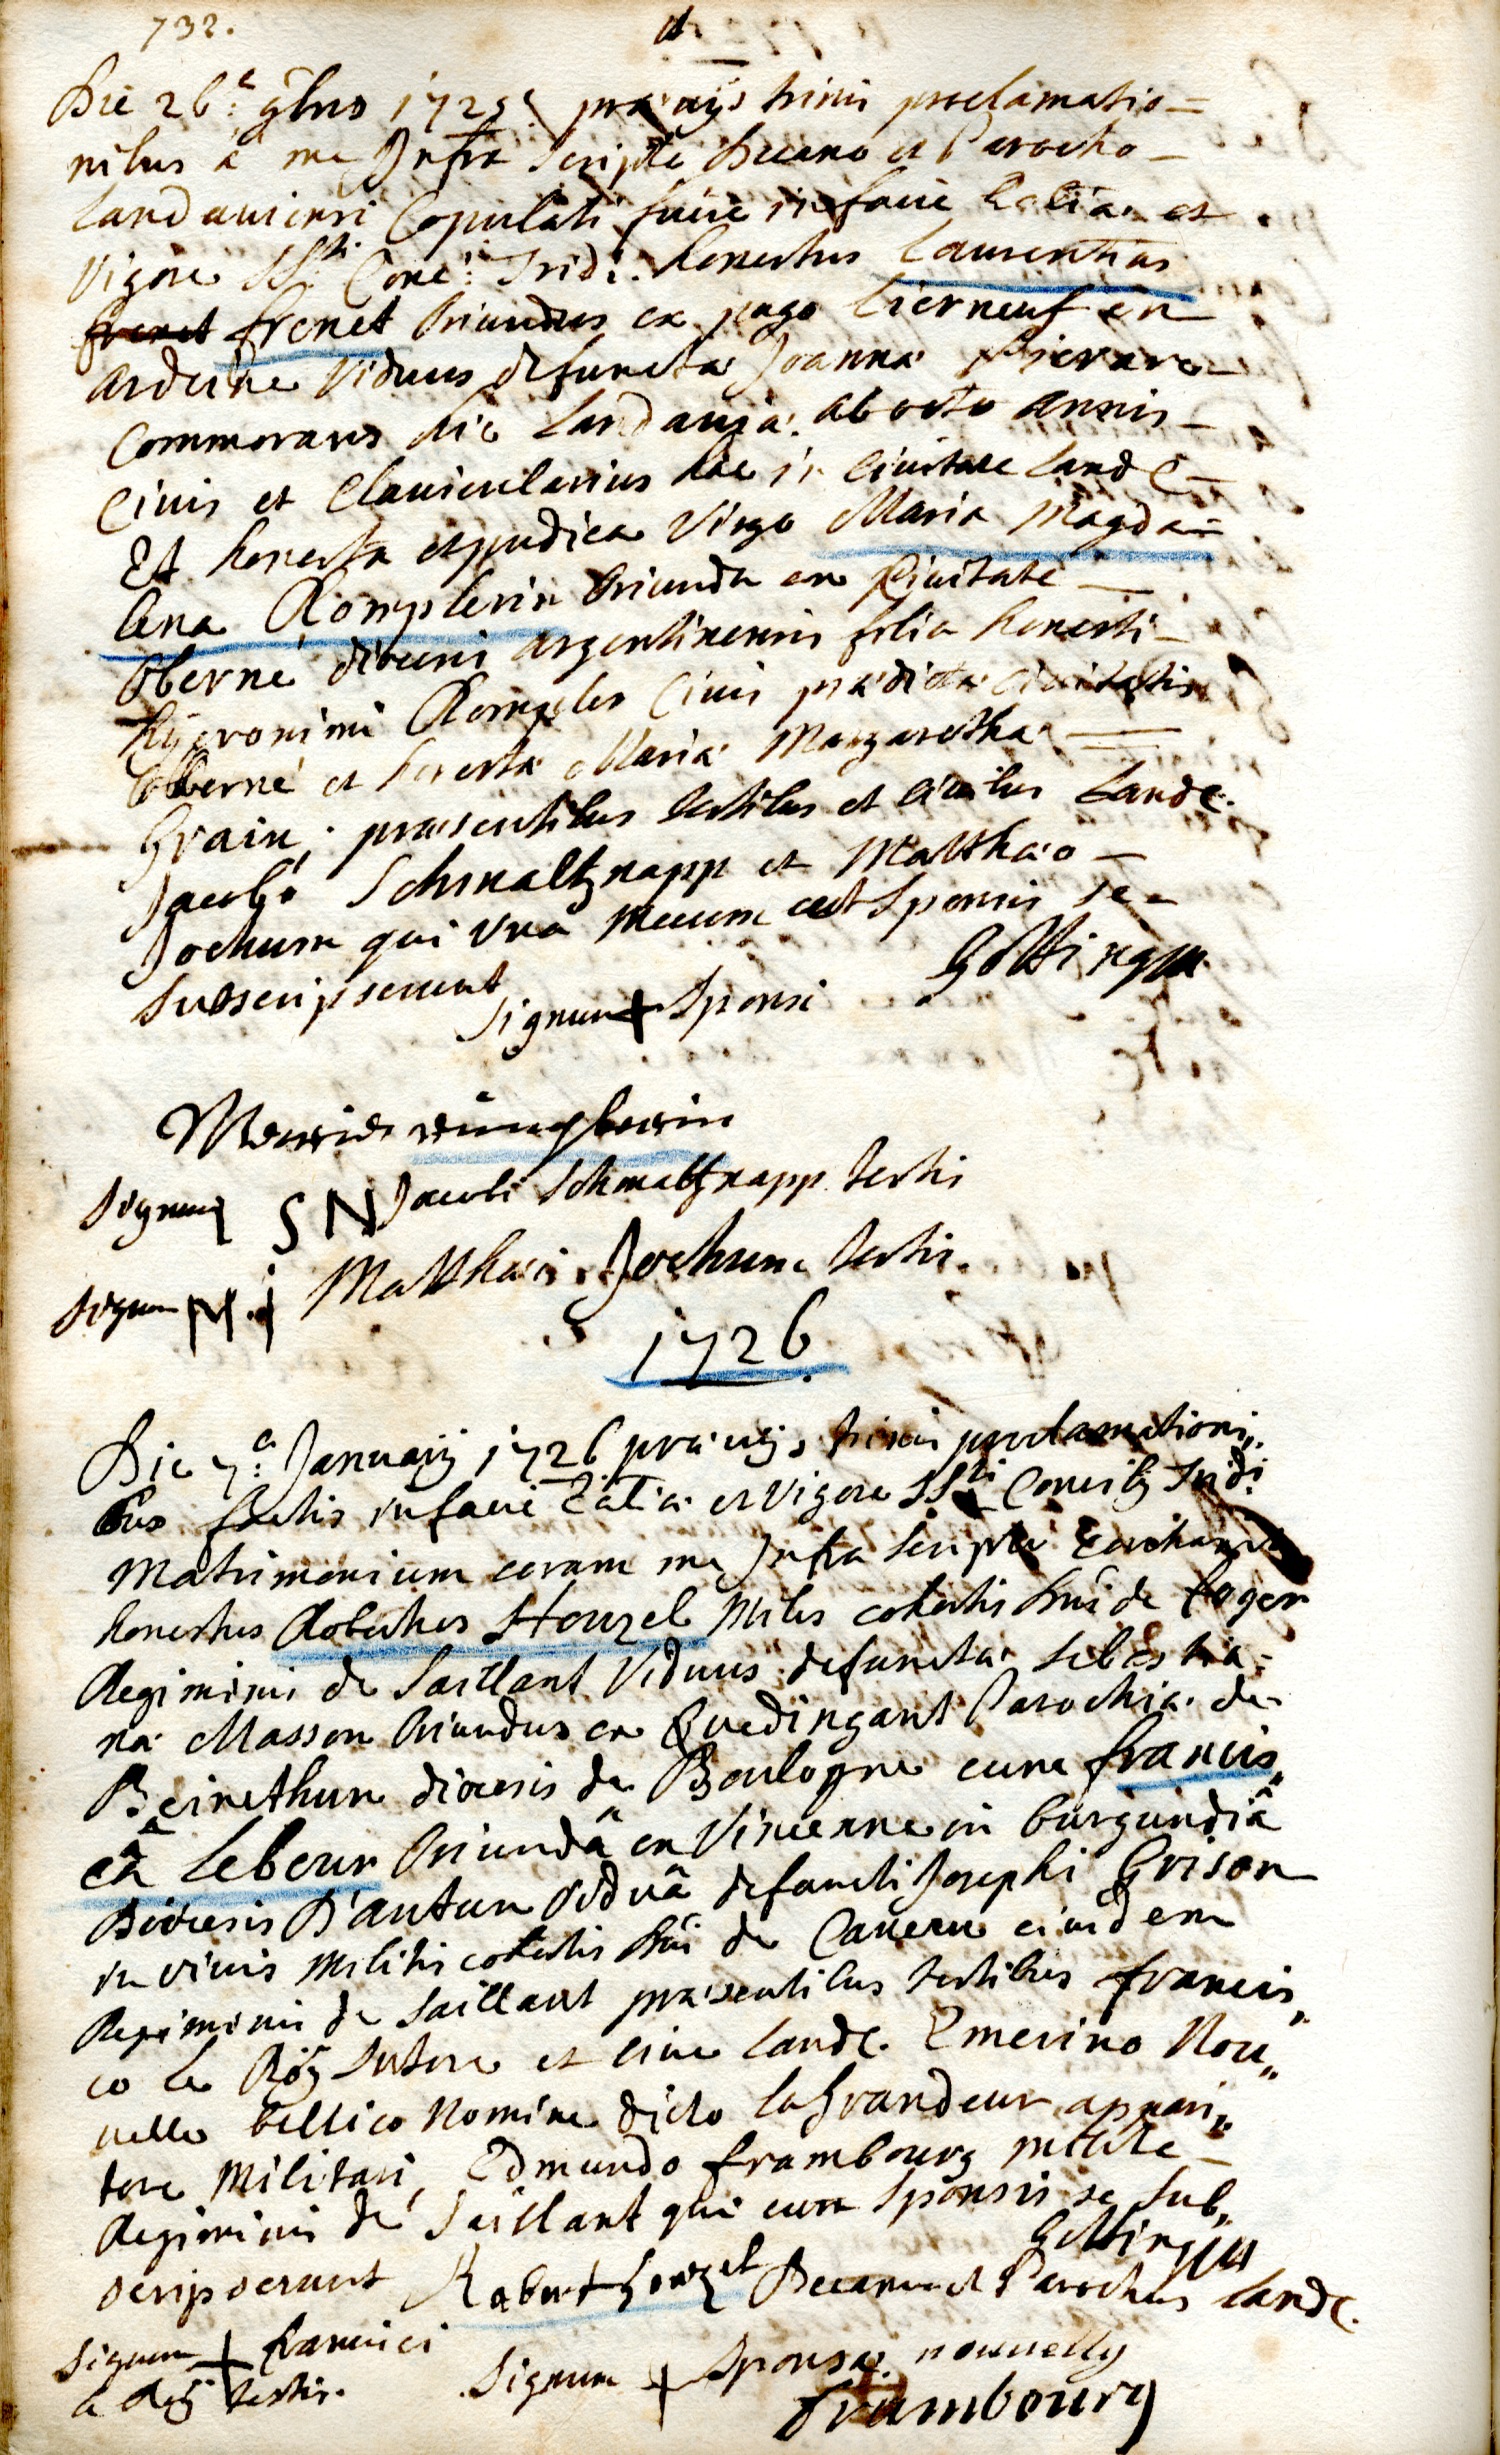 732.
Die 26ᵃ: 9bris 1725 prævijs trinis proclamatio=
nibus à me Infra scripto Decano et Parocho
Landaviensi Copulati fuere in facie Eccliæ et
vigore SSᵗⁱ Conc: Trid: honestus Laurentius
frenet frenet oriundus ex pago Lierneuf en
ardenne viduus defunctæ Joannæ
Commorans hic Landaviæ ab octo annis
Civis et Clavicularius hac in Civitate Land
Et honesta et pudica virgo Maria Magda=
lena Romplerin oriunda ex Civitate
Oberné diœcesis argentinensis filia honesti
hyeronimi Rompler Civis prædictæ civitatis
Obberné et honestæ Mariæ Margarethæ
Grain; præsentibus testibus et civibus Land.
Jacobo Schmaltznapp et Matthæo
Jochum qui una mecum et sponsis se
subscripserunt
Gottingm
signum + sponsi
Maria rimplerin
signum SN Jacobi Schmaltznapp testis
signum M.J Matthæi Jochum testis.
1726
Die 7ᵃ: Januarij 1726 prævijs trinis proclamationi,,
bus factis in facie Eccliæ et vigore SSᵗⁱ Concilij Trid:
Matrimonium coram me Infra scripto
honestus Robertus Houzel Miles cohortis Dni de Roger
Regiminis de Saillant viduus defunctæ Sebastia=
næ Masson oriundus ex Quedingant Parochiæ de
Beinethun diœcesis de Boulogne cum francis,,
câ Lebeur oriundâ ex Vincenne in burgundiâ
Diœcesis D'autun viduâ defuncti Josephi Grison
in vivis Militis cohortis Dni de eiusdem
Regiminis de Saillant præsentibus testibus francis,,
co le Roÿ sutore et cive Land. Emerino Nou,,
velle bellico Nomine dicto LaGrandeur appari,,
tore Militari, Edmundo frambourg milite
Regiminis de Saillant qui cum sponsis se sub,,
scripserunt
Gottingm
Robert houzel Decanus et Parochus Land.
signum + francisci
le Roÿ testis.
signum + sponsæ nouuelly
frambourg